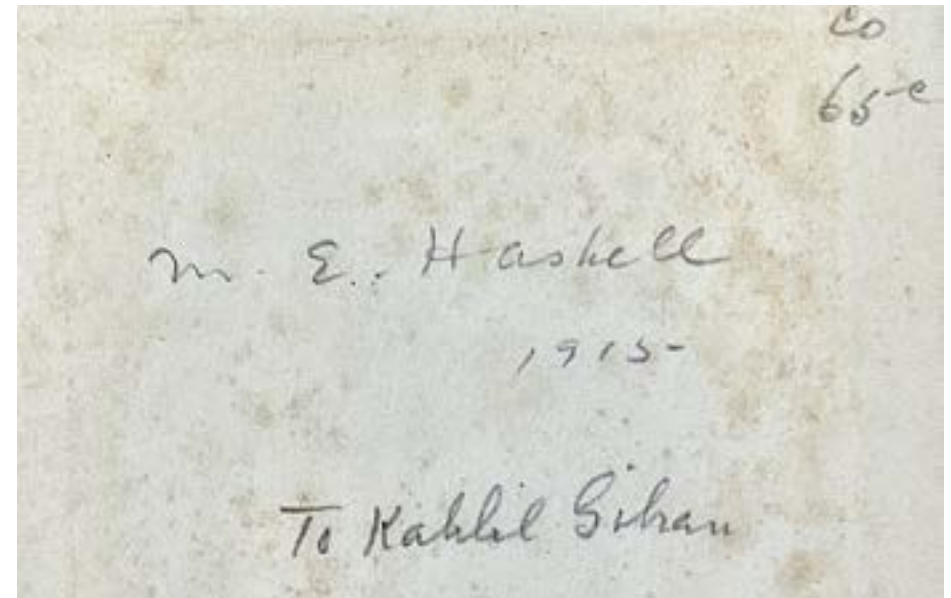 Co
65c
M. E. Haskell
1915-
To Kahlil Gibran